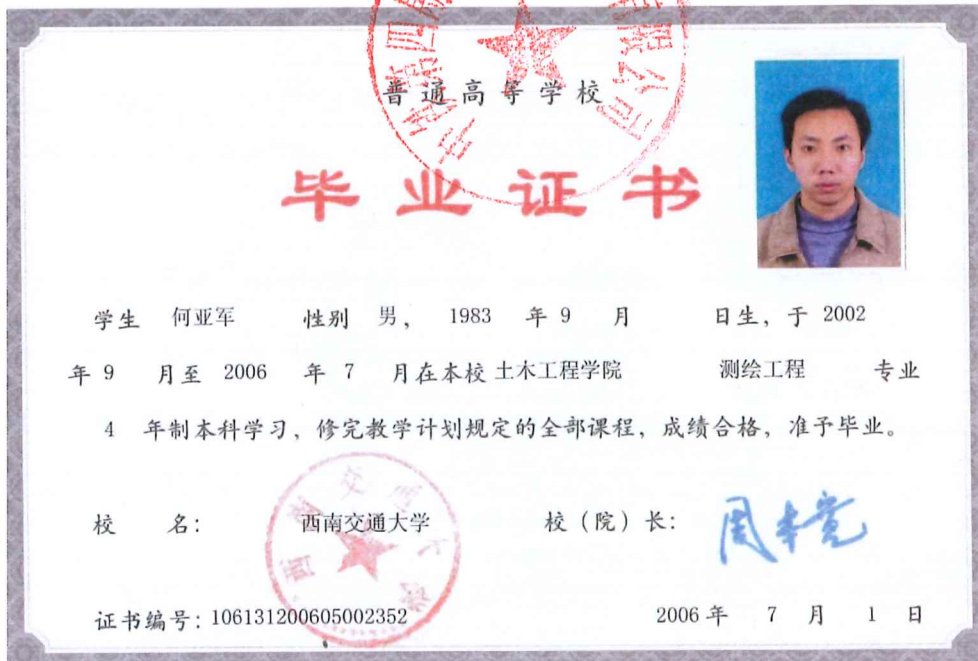 普通高等学校
毕业证书
学生 何亚军 性别 男, 1983 年 9 月 日生, 于 2002
年 9 月至 2006 年 7 月在本校 土木工程学院 测绘工程 专业
4 年制本科学习, 修完教学计划规定的全部课程, 成绩合格, 准予毕业。
校 名: 西南交通大学 校(院)长: 周本宽
证书编号: 106131200605002352 2006 年 7 月 1 日
西南交通大学